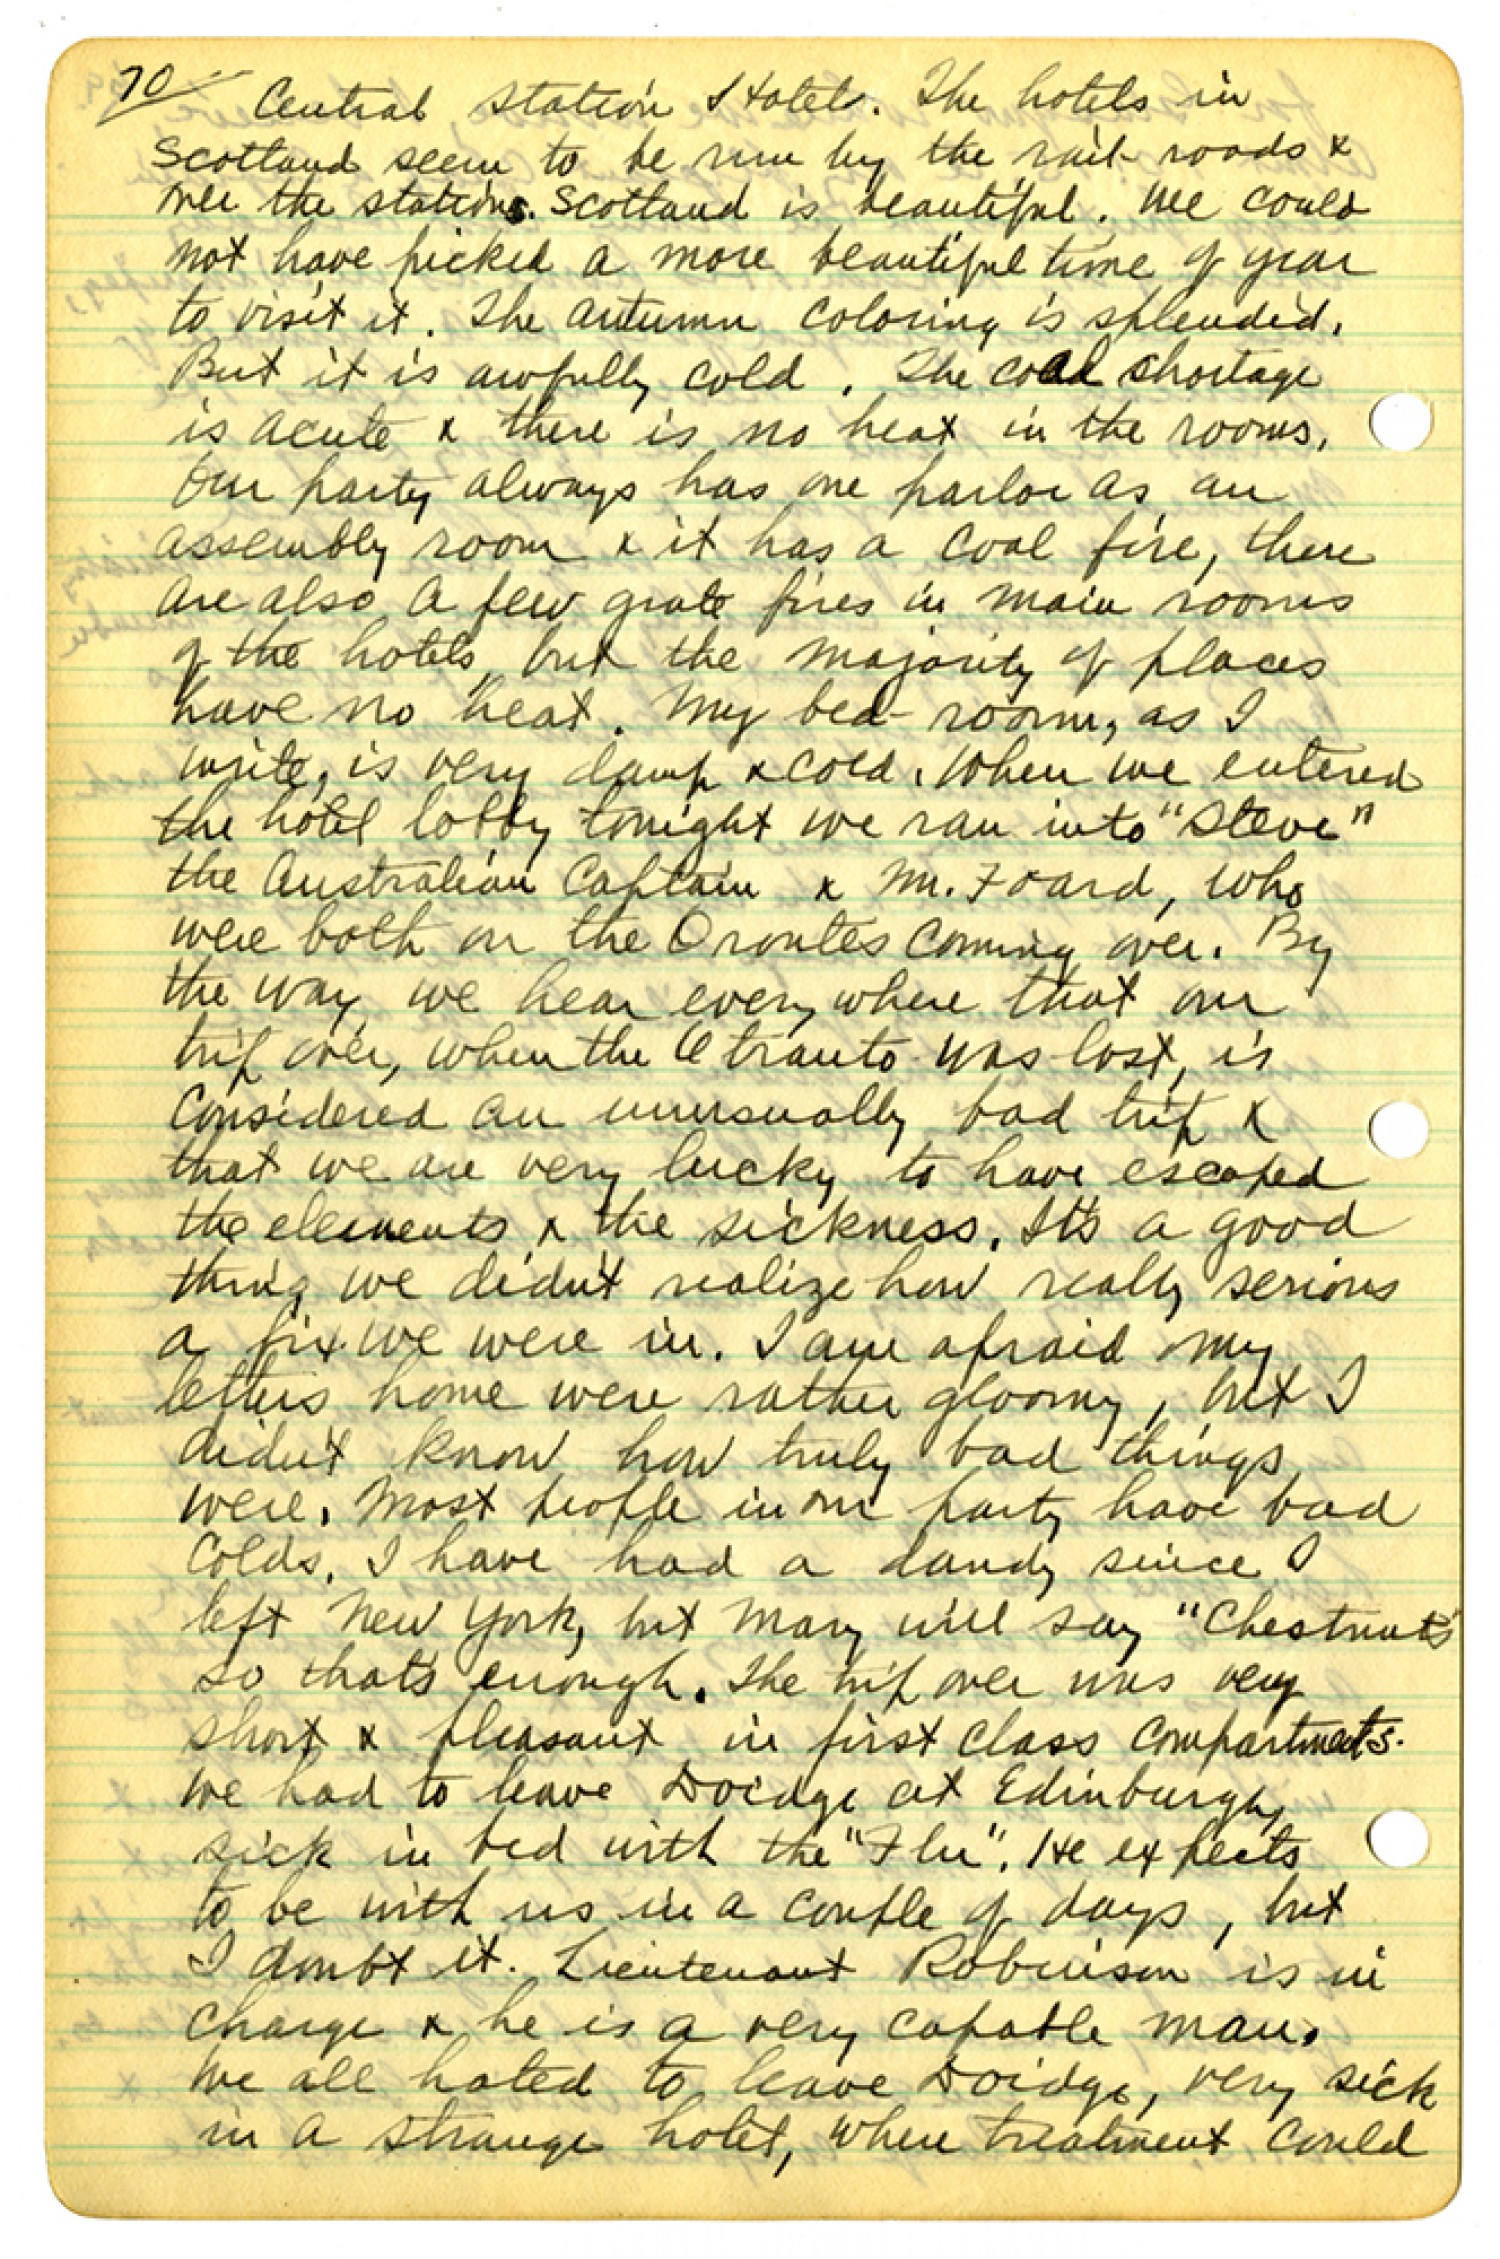 70
Central Station Hotel. The hotels in
Scotland seem to be run by the rail-roads &
over the stations. Scotland is beautiful. We could
not have picked a more beautiful time of year
to visit it. The autumn coloring is splendid.
But it is awfully cold. The coal shortage
is acute & there is no heat in the rooms.
Our party always has one parlor as an
assembly room & it has a coal fire, there
are also a few grate fires in main rooms
of the hotels, but the majority of places
have no heat. My bed-room, as I
write, is very damp & cold. When we entered
the hotel lobby tonight we ran into "Steve"
the Australian Captain & M. Foard, who
were both on the Orontes coming over. By
the way, we hear everywhere that our
trip over, when the Otranto was lost, is
considered an unusually bad trip &
that we are very lucky to have escaped
the elements & the sickness. It's a good
thing we didn't realize how really serious
a fix we were in. I am afraid my
letters home were rather gloomy, but I
didn't know how truly bad things
were. Most people in our party have bad
colds. I have had a dandy since I
left New York, but Mary will say "Chestnuts"
so that's enough. The trip over was very
short & pleasant in first class compartments.
We had to leave Doidge at Edinburgh,
sick in bed with the "Flu". He expects
to be with us in a couple of days, but
I doubt it. Lieutenant Robinson is in
charge & he is a very capable man.
We all hated to leave Doidge, very sick
in a strange hotel, where treatment could